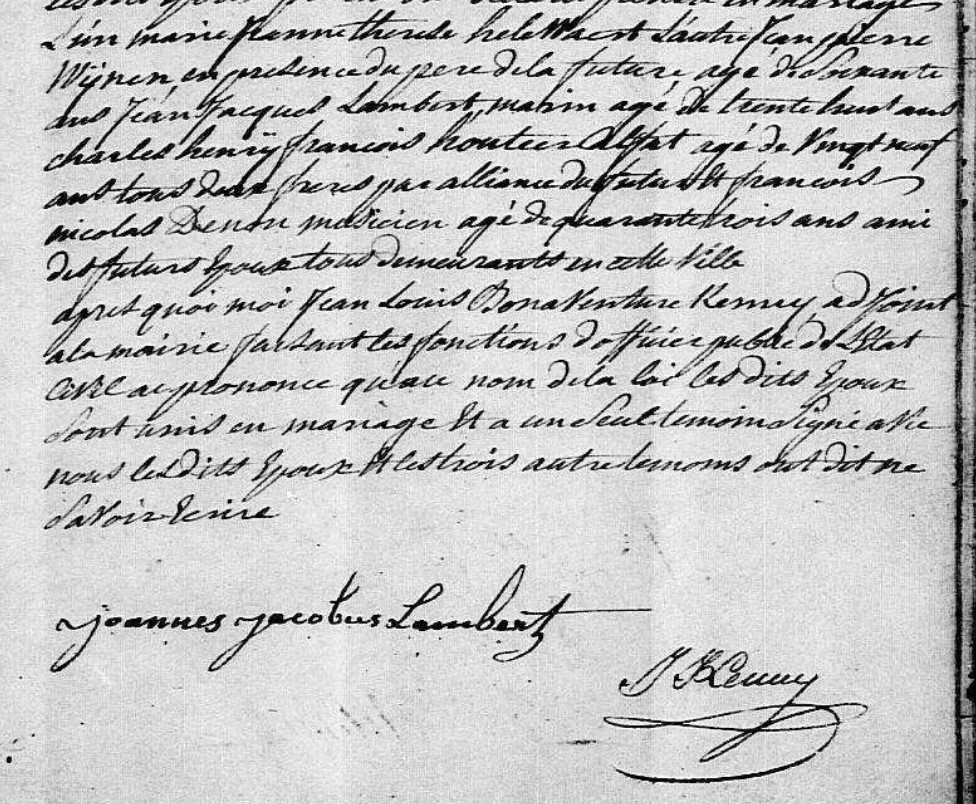 prendre en mariage
L'un marie jeanne therese helewaert L'autre Jean pierre
Wijnen, en presence du pere de la future agé de Soixante
ans Jean Jacques Lambert, marin agé de trente huit ans
charles henrÿ françois agé de Vingt neuf
ans tous deux freres par alliance du futur Et francois
nicolas Denon musicien agé de quarante trois ans ami
des futurs Epoux tous demeurants en cette Ville
apres quoi moi Jean Louis Bonaventure Kenny, adjoint
a la mairie faisant les fonctions d'officier public de L'Etat
Civil ai prononcé qu'au nom de la loi les dits Epoux
sont unis en mariage Et a un seul temoin Signé avec
nous les dits Epoux Et les trois autre temoins ont dit ne
savoir Ecrire
joannes jacobus Lambert
J Kenny